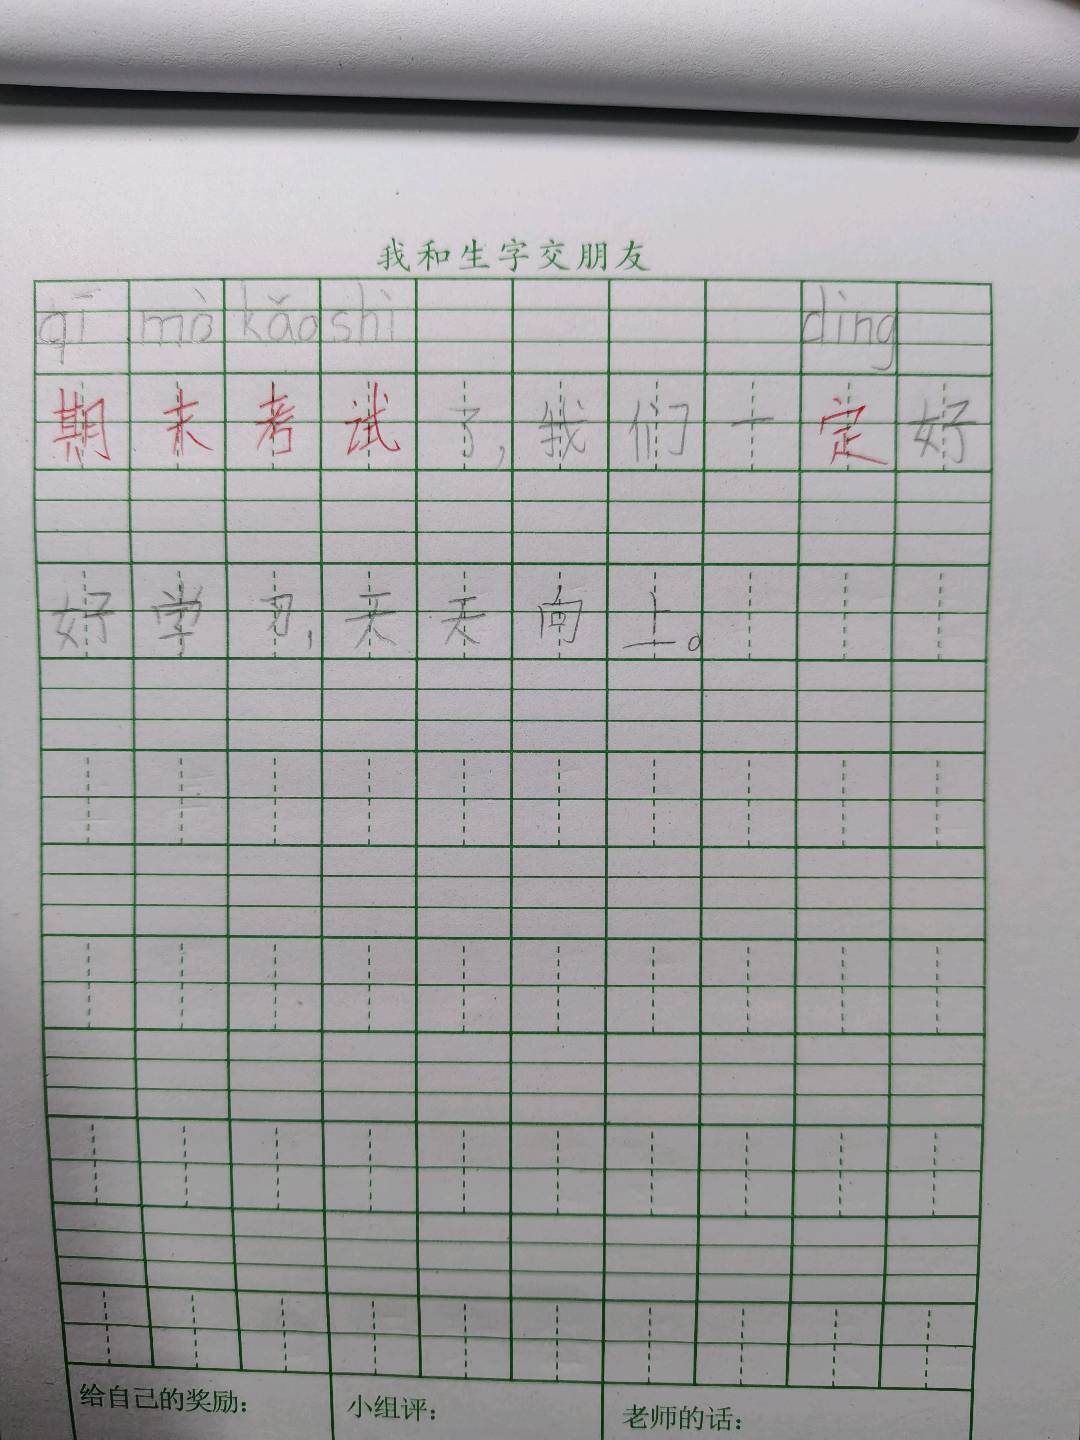 我和生字交朋友
qī mò kǎo shì dìng
期末考试了,我们一定好
好学习,天天向上。
给自己的奖励:
小组评:
老师的话: